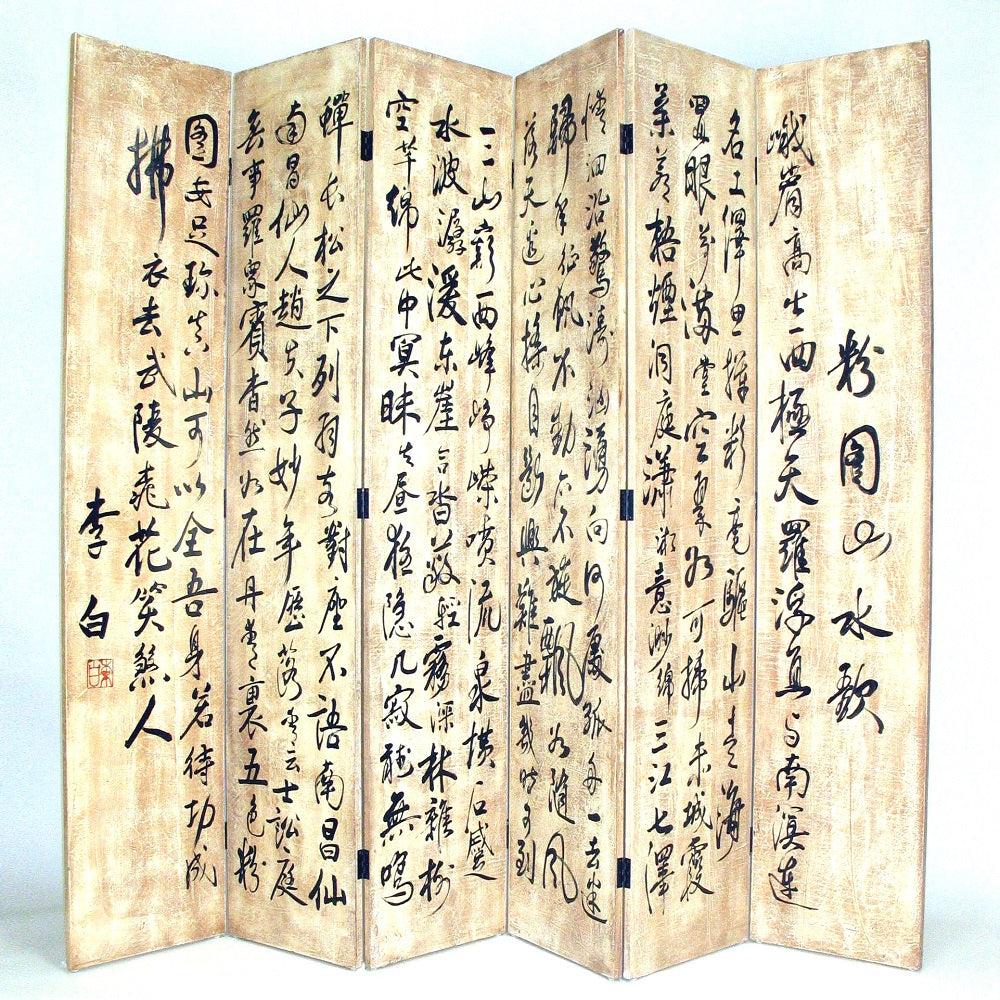 粉圖山水歌
峨眉高出西極天羅浮直与南溟連
名工繹思揮彩毫驅山走海
置眼前滿堂空翠如可掃赤城霞
氣蒼梧煙洞庭瀟湘意渺綿三江七澤
情洄沿驚濤洶湧向何處孤舟一去迷
歸年征帆不動亦不旋飄如隨風
落天邊心搖目斷興難盡幾時可到
三山巔西峰崢嶸噴流泉橫石蹙
水波潺湲東崖合沓蔽輕霧深林雜樹
空芊綿此中冥昧失晝夜隱几寂聽無鳴
蟬長松之下列羽客對座不語南昌仙
南昌仙人趙夫子妙年歷落青云士訟庭
無事羅眾賓杳然如在丹青裏五色粉
圖安足珍真山可以全吾身若待功成
拂衣去武陵桃花笑煞人
李白